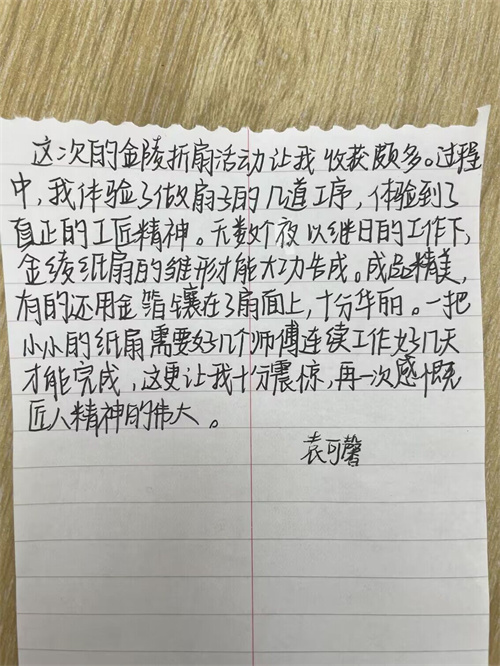 这次的金陵折扇活动让我收获颇多。过程
中，我体验了做扇子的几道工序，体验到了
真正的工匠精神。无数个夜以继日的工作下，
金绫纸扇的雏形才能大功告成。成品精美，
有的还用金箔镶在了扇面上，十分华丽。一把
小小的纸扇需要好几个师傅连续工作好几天
才能完成，这更让我十分震惊，再一次感慨
匠人精神的伟大。
袁可馨